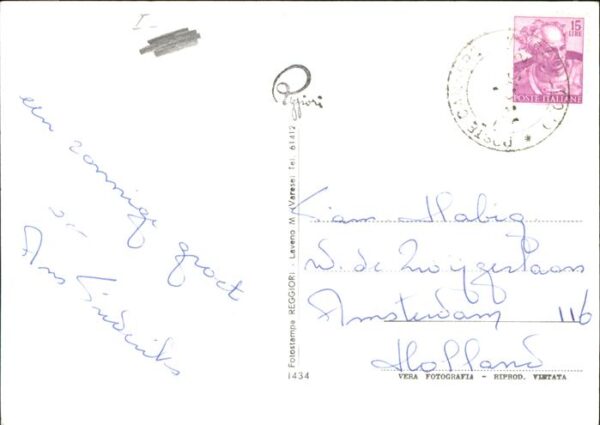 I-
een zonnige groet
Ans
Reggiori
Fotostampa REGGIORI - Laveno M. (Varese) Tel. 61412
1434
15
LIRE
POSTE ITALIANE
POSTE
Siam Habig
W. de Zwijgerlaan
Amsterdam 116
Holland
VERA FOTOGRAFIA - RIPROD. VIETATA